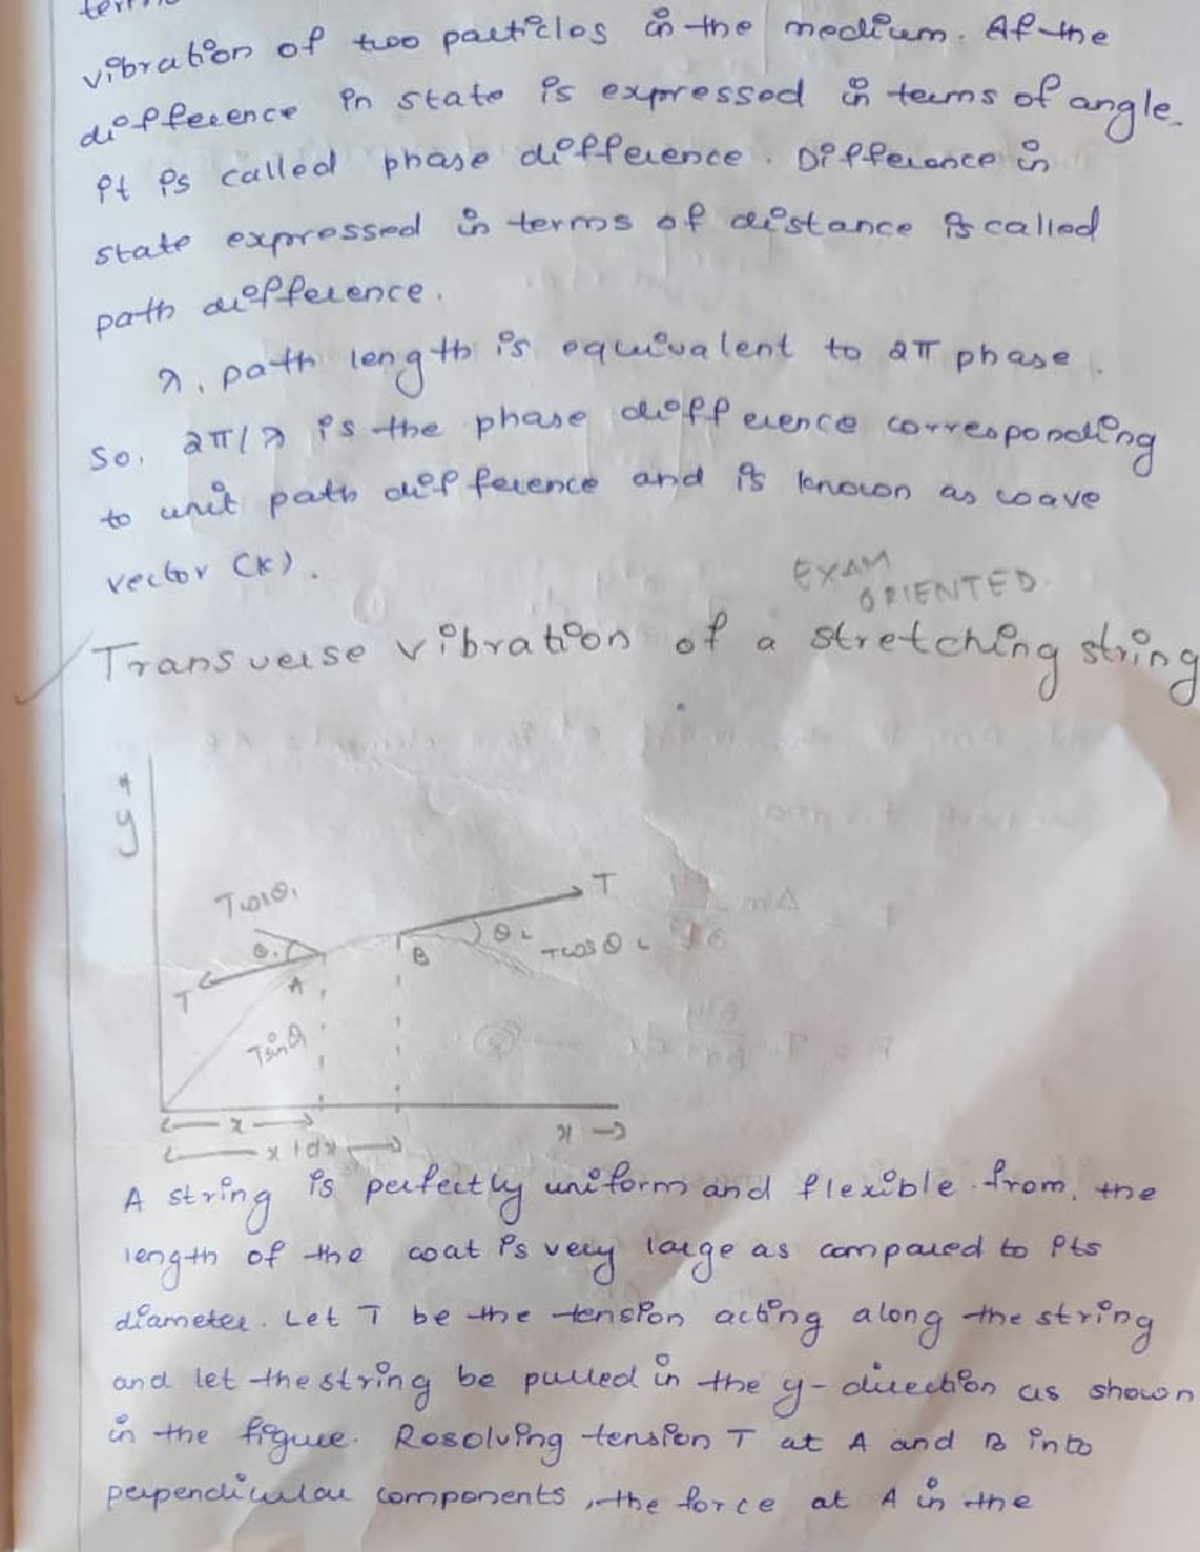 vibration of two particles in the medium. If the
difference in state is expressed in terms of angle.
it is called phase difference. Difference in
state expressed in terms of distance is called
path difference.
λ, path length is equivalent to 2π phase.
So. 2π/λ is the phase difference corresponding
to unit path difference and is known as wave
vector (k).
EXAM
ORIENTED
Transverse vibration of a stretching string
y
T
Tcosθ₁
θ₁
θ₂
Tcosθ₂
B
T
A
Tsinθ₁
x
x
x+dx
A string is perfectly uniform and flexible from, the
length of the coat is very large as compared to its
diameter. Let T be the tension acting along the string
and let the string be pulled in the y-direction as shown
in the figure. Resolving tension T at A and B into
perpendicular components, the force at A in the